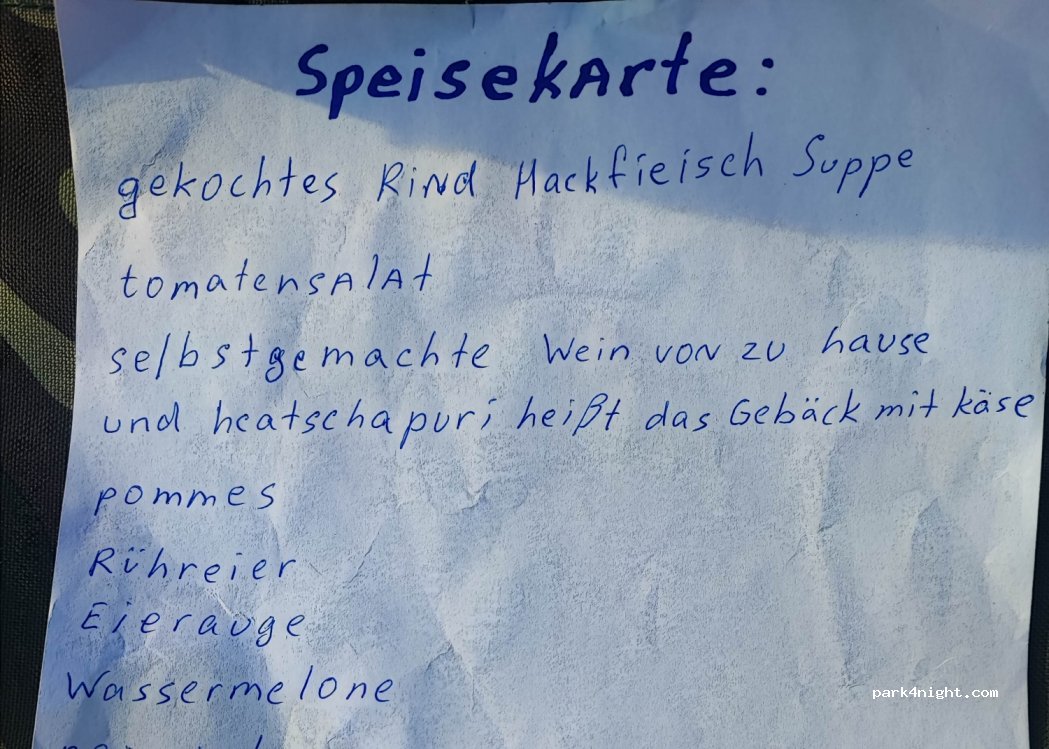 SpeisekArte:
gekochtes Rind Hackfieisch Suppe
tomatensAlAt
selbstgemachte Wein von zu hause
und hcatschapuri heißt das Gebäck mit käse
pommes
Rühreier
Eierauge
Wassermelone
park4night.com